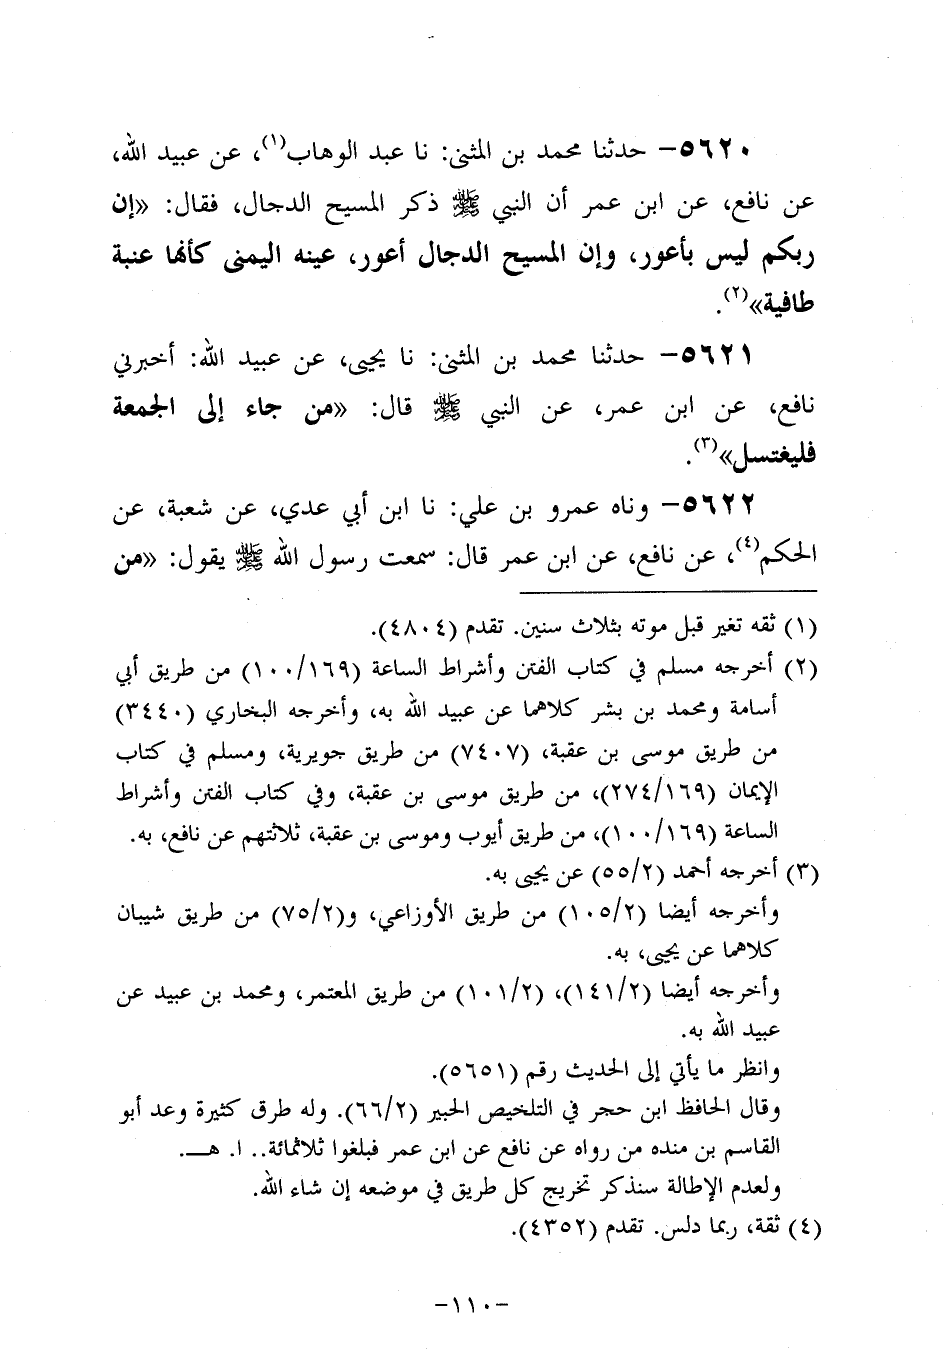 ٥٦٢٠- حدثنا محمد بن المثنى: نا عبد الوهاب(١)، عن عبيد الله،
عن نافع، عن ابن عمر أن النبي ﷺ ذكر المسيح الدجال، فقال: «إن
ربكم ليس بأعور، وإن المسيح الدجال أعور، عينه اليمنى كأنها عنبة
طافية»(٢).
٥٦٢١- حدثنا محمد بن المثنى: نا يحيى، عن عبيد الله: أخبرني
نافع، عن ابن عمر، عن النبي ﷺ قال: «من جاء إلى الجمعة
فليغتسل»(٣).
٥٦٢٢- وناه عمرو بن علي: نا ابن أبي عدي، عن شعبة، عن
الحكم(٤)، عن نافع، عن ابن عمر قال: سمعت رسول الله ﷺ يقول: «من
(١) ثقه تغير قبل موته بثلاث سنين. تقدم (٤٨٠٤).
(٢) أخرجه مسلم في كتاب الفتن وأشراط الساعة (١٠٠/١٦٩) من طريق أبي
أسامة ومحمد بن بشر كلاهما عن عبيد الله به، وأخرجه البخاري (٣٤٤٠)
من طريق موسى بن عقبة، (٧٤٠٧) من طريق جويرية، ومسلم في كتاب
الإيمان (٢٧٤/١٦٩)، من طريق موسى بن عقبة، وفي كتاب الفتن وأشراط
الساعة (١٠٠/١٦٩)، من طريق أيوب وموسى بن عقبة، ثلاثتهم عن نافع، به.
(٣) أخرجه أحمد (٥٥/٢) عن يحيى به.
وأخرجه أيضا (١٠٥/٢) من طريق الأوزاعي، و(٧٥/٢) من طريق شيبان
كلاهما عن يحيى، به.
وأخرجه أيضا (١٤١/٢)، (١٠١/٢) من طريق المعتمر، ومحمد بن عبيد عن
عبيد الله به.
وانظر ما يأتي إلى الحديث رقم (٥٦٥١).
وقال الحافظ ابن حجر في التلخيص الحبير (٦٦/٢). وله طرق كثيرة وعد أبو
القاسم بن منده من رواه عن نافع عن ابن عمر فبلغوا ثلاثمائة.. ا. هــ.
ولعدم الإطالة سنذكر تخريج كل طريق في موضعه إن شاء الله.
(٤) ثقة، ربما دلس. تقدم (٤٣٥٢).
-١١٠-